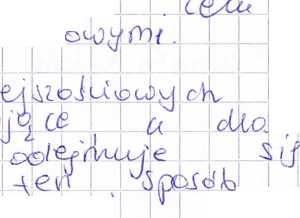 celu
owymi.
ejszościowych
jące a dla
odejmuje się
ten sposób